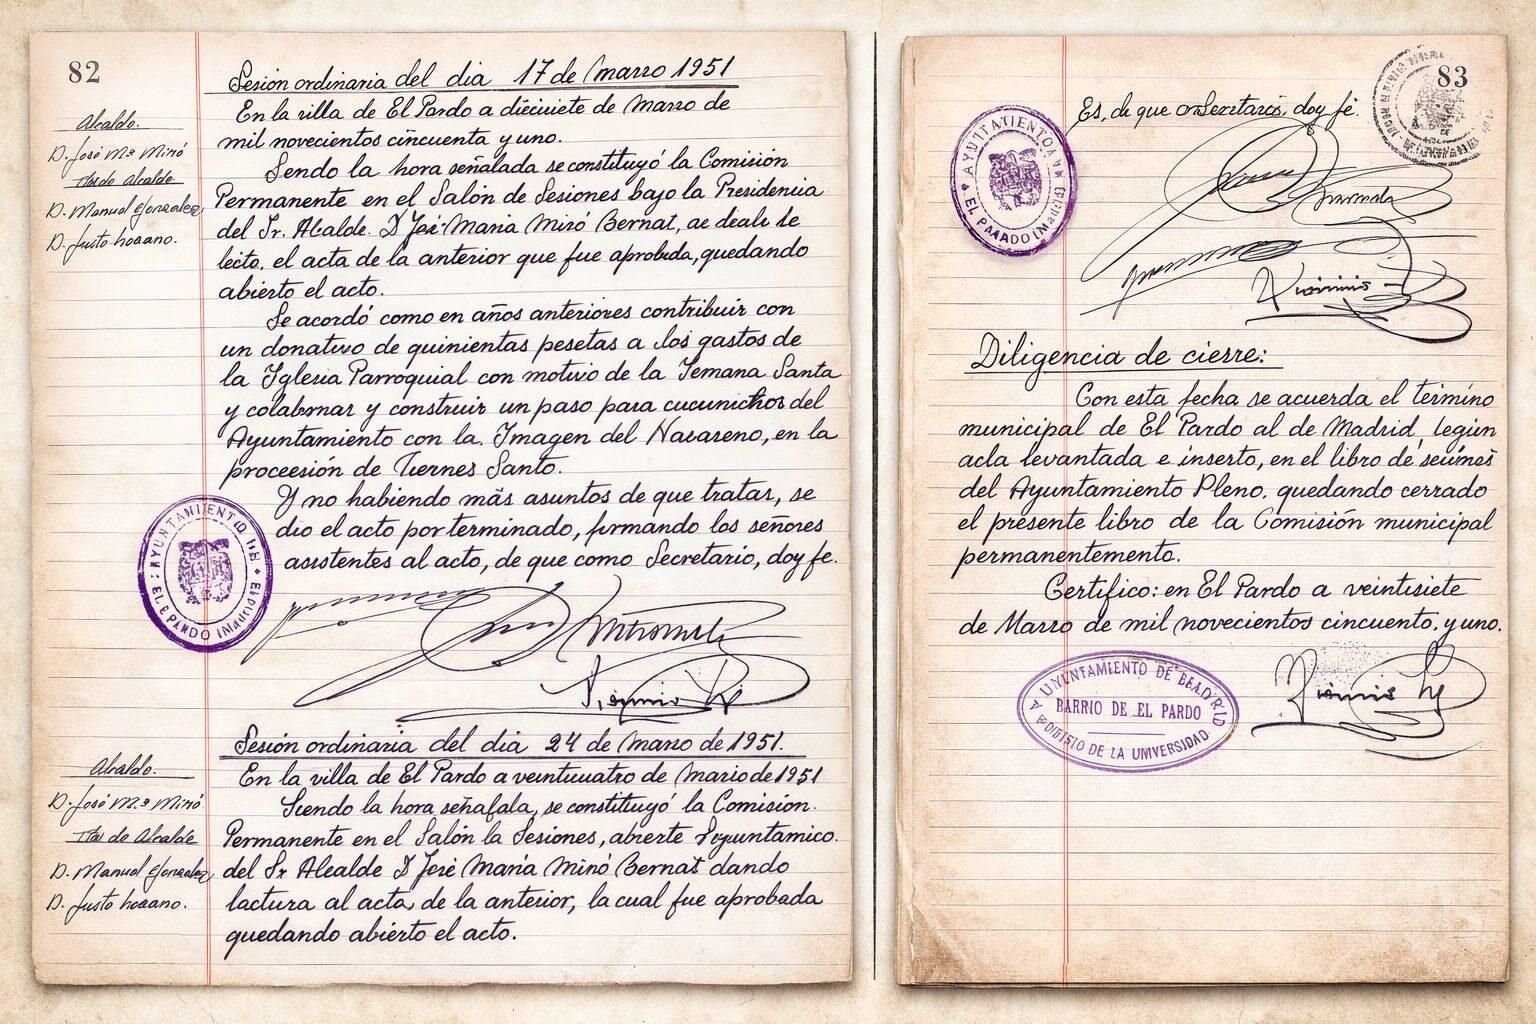 82
Sesión ordinaria del dia 17 de Marzo 1951
Alcaldo.
D. José Mª Miró
Tte de Alcalde
D. Manuel Gonzalez
D. Justo Lozano.
En la villa de El Pardo a dieciuiete de Marzo de
mil novecientos cincuenta y uno.
Sendo la hora señalada se constituyó la Comisión
Permanente en el Salón de Sesiones bajo la Presidencia
del Sr. Alcalde. D José Maria Miró Bernat, ae deale le
lecto, el acta de la anterior que fue aprobada, quedando
abierto el acto.
Se acordó como en años anteriores contribuir con
un donativo de quinientas pesetas a los gastos de
la Iglesia Parroquial con motivo de la Semana Santa
y colabmar y construir un paso para cucunichos del
Ayuntamiento con la Imagen del Nazareno, en la
proceesión de Tiernes Santo.
Y no habiendo más asuntos de que tratas, se
dio el acto por terminado, firmando los señores
asistentes al acto, de que como Secretario, doy fe.
AYUNTAMIENTO
EL PARDO (Madrid)
Sesión ordinaria del dia 24 de Marzo de 1951.
Alcaldo.
D. José M.ª Miró
Tte de Alcalde
D. Manuel Gonzalez
D. Justo Lozano.
En la villa de El Pardo a veintuuatro de Marzo de 1951
Siendo la hora señafala, se constituyó la Comisión.
Permanente en el Salón la Sesiones, abierte Ayuntamico.
del Sr Alcalde D José María Miró Bernat dando
lactura al acta de la anterior, la cual fue aprobada
quedando abierto el acto.
83
Es, de que onSecretario, doy fé.
AYUNTAMIENTO
EL PAADO
Diligencia de cierre:
Con esta fecha se acuerda el término
municipal de El Pardo al de Madrid, legún
acla levantada e inserto, en el libro de seiúnes
del Ayuntamiento Pleno, quedando cerrado
el presente libro de la Comisión municipal
permanentemento.
Certifico: en El Pardo a veintisiete
de Marzo de mil novecientos cincuento, y uno.
UYUNTAMIENTO DE BEADRID
BARRIO DE EL PARDO
DE LA UNIVERSIDAD